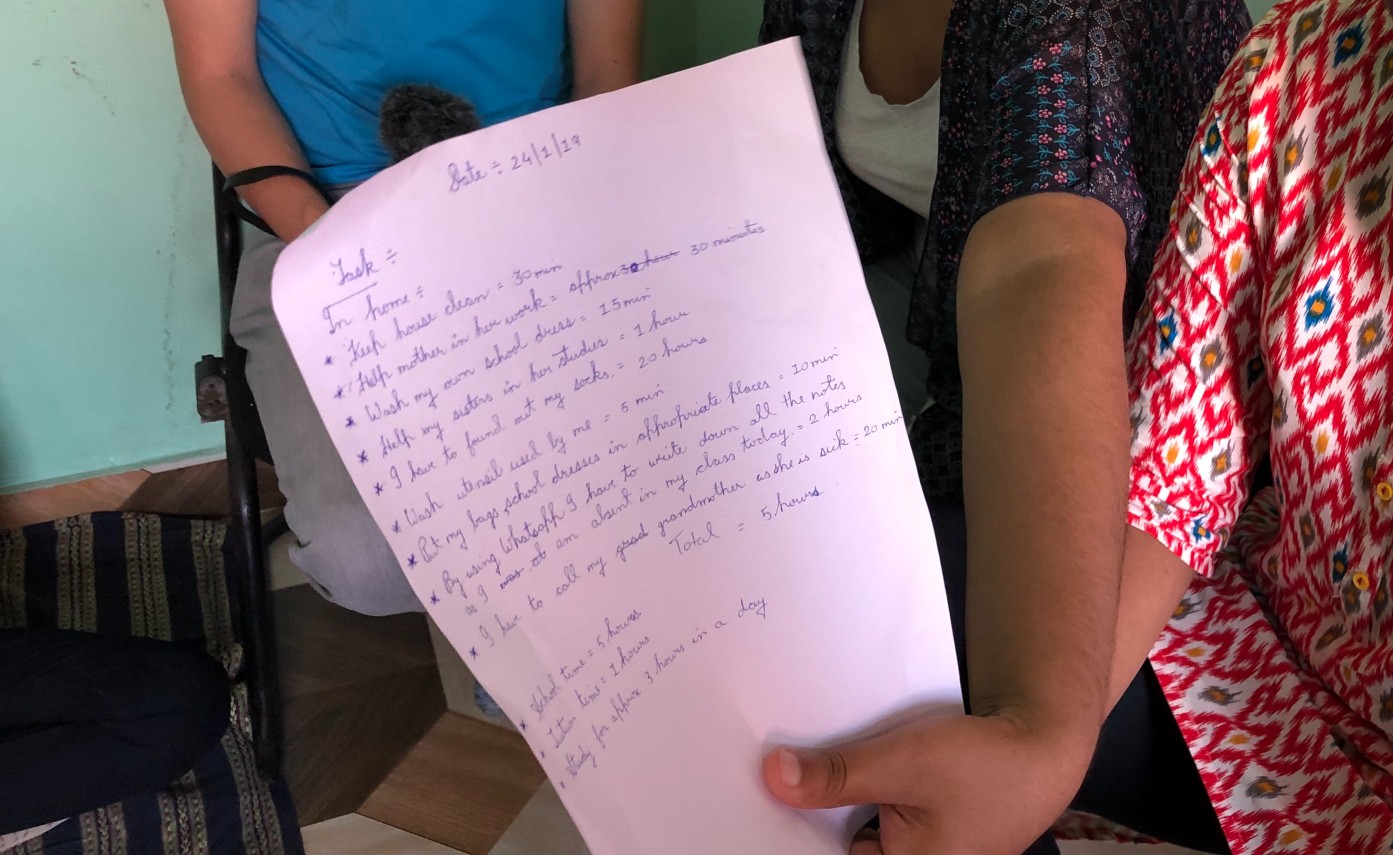 Date ÷ 24/1/19
Task ÷
In home ÷
* Keep house clean = 30 min
* Help mother in her work = approx 30 hour 30 minutes
* Wash my own school dress = 15 min
* Help my sisters in her studies = 1 hour
* I have to found out my socks = 20 hours
* Wash utensil used by me = 5 min
* Put my bags, school dresses in appropriate places = 10 min
* By using Whatsapp I have to write down all the notes
as I was am absent in my class today = 2 hours
* I have to call my grad grandmother as she is sick = 20 min
Total = 5 hours
* School time = 5 hours
* Tution time = 1 hours
* Study for approx 3 hours in a day